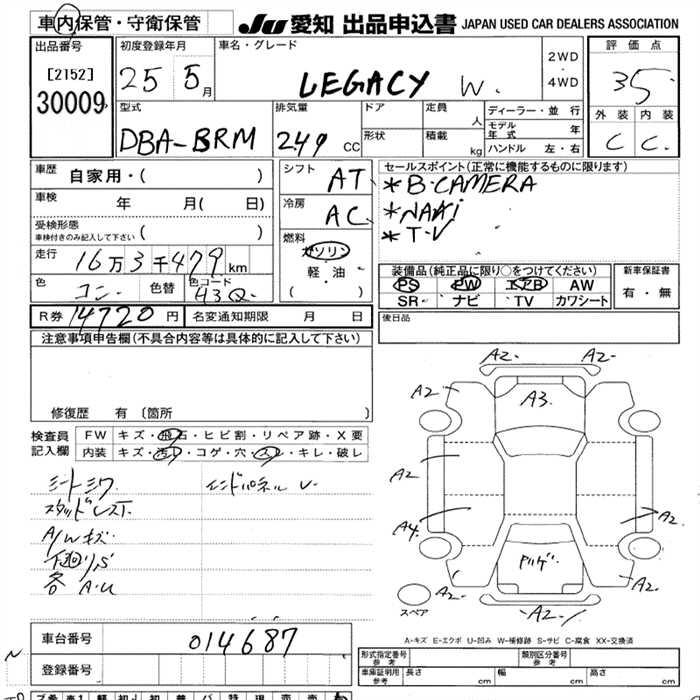 車内保管・守衛保管
JU 愛知 出品申込書 JAPAN USED CAR DEALERS ASSOCIATION
出品番号
[2152]
30009
初度登録年月
25 5月
車名・グレード
LEGACY W.
2WD
・
4WD
評価点
3.5
外装 内装
C C
型式
DBA-BRM
排気量
249 CC
ドア
形状
定員 人
積載 kg
ディーラー・並行
モデル年式 年
ハンドル 左・右
車歴 自家用・( )
車検 年 月( 日)
受検形態
車検付きのみ記入して下さい ( )
走行 16万3千479km
色 コン 色替 色コード 43Q
シフト AT
冷房 AC
燃料
ガソリン
軽・油
( )
セールスポイント(正常に機能するものに限ります)
*B-CAMERA
*NAVi
*T-V
装備品(純正品に限り○をつけてください)
PS PW エアB AW
SR ナビ TV カワシート
新車保証書
有・無
R券 14720円 名変通知期限 月 日
後日品
注意事項申告欄(不具合内容等は具体的に記入して下さい)
修復歴 有 〔箇所 〕
検査員記入欄
FW キズ・飛石・ヒビ割・リペア跡・X要
内装 キズ・汚れ・コゲ・穴・スレ・キレ・破レ
シートシワ インドパネル
スタッドレスT.
A/Wキズ
下廻りS
各 A.U
A2- A2-
A2- A3. A2-
A2
A4. A2-
A2- A2-
A2-
スペア
A-キズ E-エクボ U-凹み W-補修跡 S-サビ C-腐食 XX-交換済
車台番号 014687
登録番号
形式指定番号 参考
類別区分番号 参考
車庫証明用 参考 長さ cm 幅 cm 高さ cm